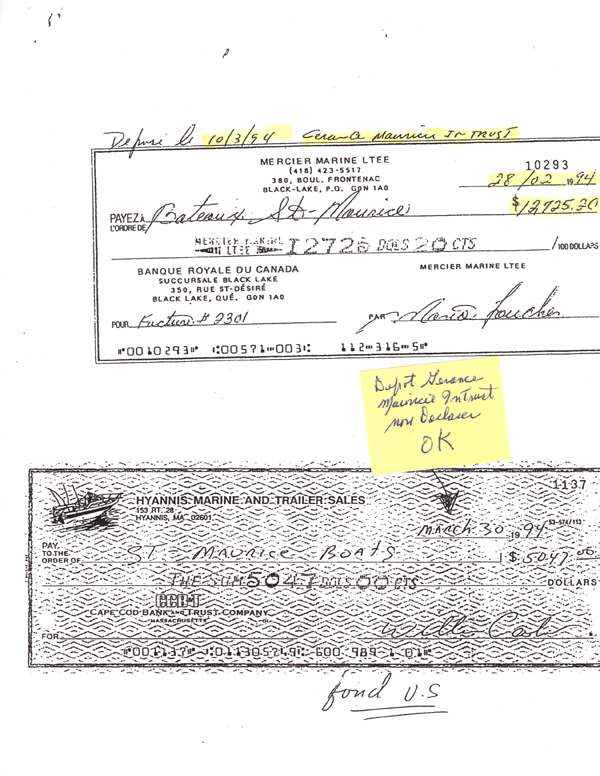 Déposé le 10/3/94 Gérance Mauricie In TRUST
MERCIER MARINE LTEE
(418) 423-5517
380, BOUL. FRONTENAC
BLACK-LAKE, P.Q. G0N 1A0
10293
28/02 1994
PAYEZ À
L'ORDRE DE
Bateaux St-Maurice
$12725.20
DOLS 20 CTS
/100 DOLLARS
BANQUE ROYALE DU CANADA
SUCCURSALE BLACK LAKE
350, RUE ST-DÉSIRÉ
BLACK LAKE, QUÉ. G0N 1A0
MERCIER MARINE LTEE
POUR Facture # 2301
PAR
⑈0010293⑈ ⑆00571⑉003⑆ 112⑉316⑉5⑈
Depot Gerance
Mauricie In Trust
non Declarer
OK
1137
HYANNIS MARINE AND TRAILER SALES
153 RT. 28
HYANNIS, MA 02601
53-574/113
March 30 1994
PAY
TO THE
ORDER OF
ST-MAURICE BOATS
$5047.00
THE SUM 5047 DOLS 00 CTS
DOLLARS
CCB&T
CAPE COD BANK AND TRUST COMPANY
MASSACHUSETTS
FOR
⑈001137⑈ ⑆011305749⑆ 600 989 1 01⑈
fond U.S